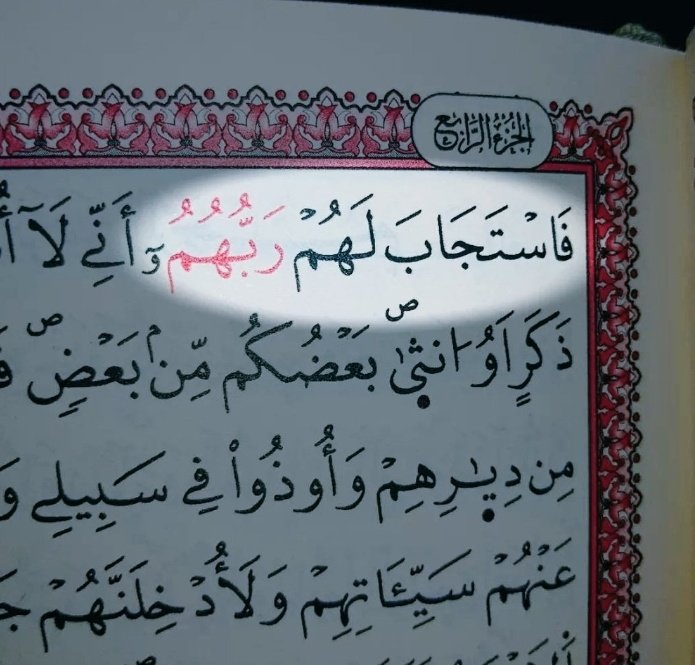 الجزء الرابع
فَاسْتَجَابَ لَهُمْ رَبُّهُمُۥٓ أَنِّي لَآ
ذَكَرٍ اَوُ ا۟نث۪ىٰۖ بَعْضُكُم مِّنۢ بَعْضٖۖ
مِن دِيٰ۪رِهِمْ وَأُوذُواْ فِي سَبِيلِے
عَنْهُمْ سَيِّـَٔاتِهِمْ وَلَأُدْخِلَنَّهُمْ